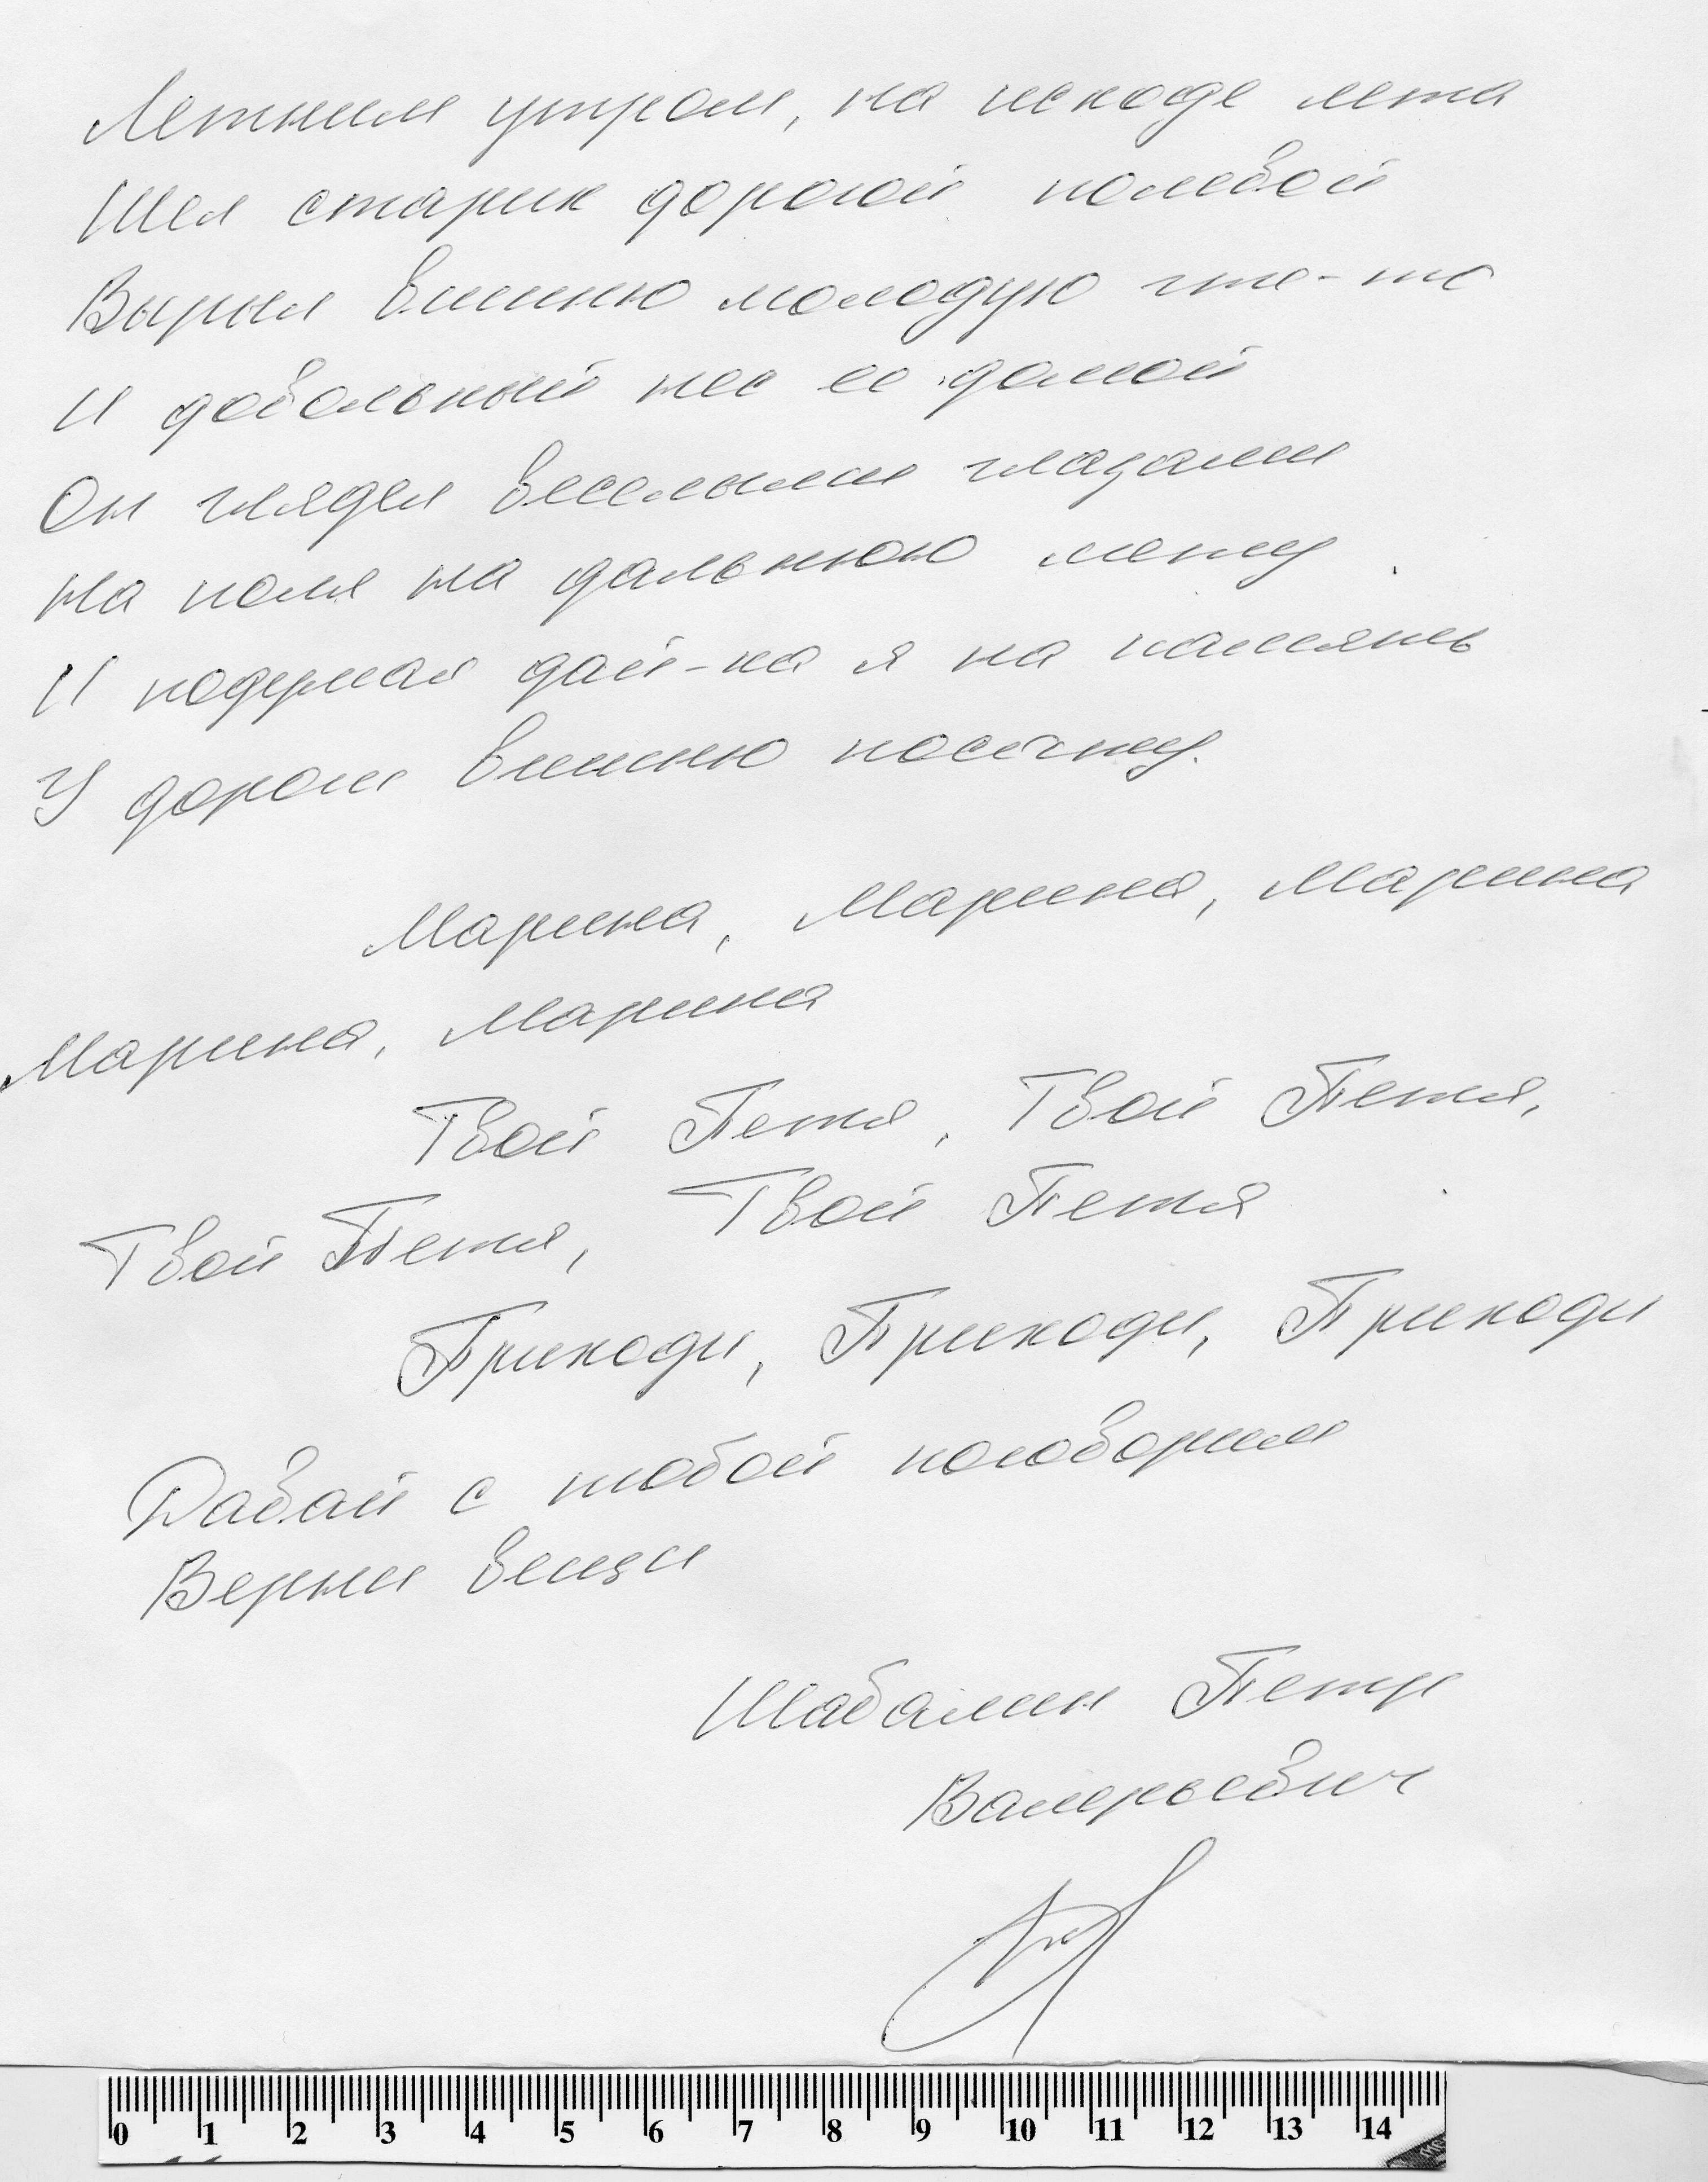 Летним утром, на исходе лета
Шел старик дорогой полевой
Вырыл вишню молодую где-то
И довольный нес ее домой
Он глядел веселыми глазами
на поля на дальнюю межу
И подумал дай-ка я на память
У дороги вишню посажу.
Марина, Марина, Марина
Марина, Марина
Твой Петя, Твой Петя,
Твой Петя, Твой Петя
Приходи, Приходи, Приходи
Давай с тобой поговорим
Верни вещи
Шабалин Петр
Валерьевич
0 1 2 3 4 5 6 7 8 9 10 11 12 13 14